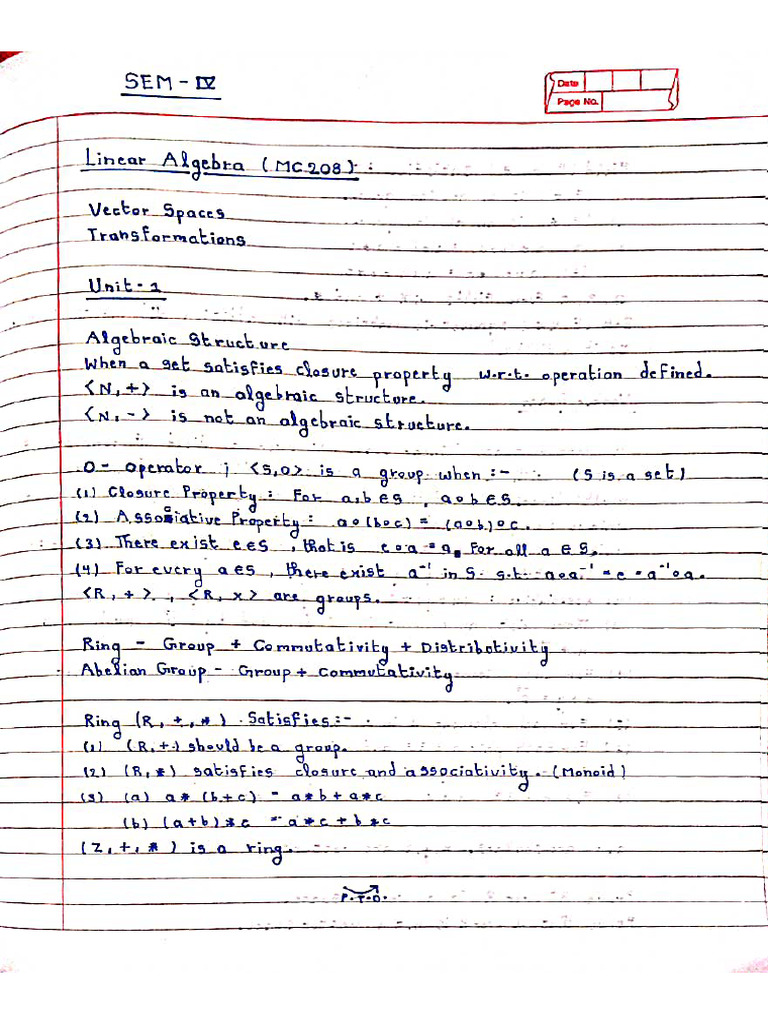 SEM - IV
Date
Page No.
Linear Algebra (MC208) :
Vector Spaces
Transformations
Unit - 1
Algebraic Structure
When a set satisfies closure property w.r.t. operation defined.
<N, +> is an algebraic structure.
<N, -> is not an algebraic structure.
O - operator ; <S, O> is a group when :- (S is a set)
(1) Closure Property : For a, b ∈ S , a o b ∈ S.
(2) Associative Property : a o (b o c) = (a o b) o c.
(3) There exist e ∈ S , that is e o a = a, For all a ∈ S.
(4) For every a ∈ S , there exist a⁻¹ in S. s.t. a o a⁻¹ = e = a⁻¹ o a.
<R, +> , <R, x> are groups.
Ring - Group + Commutativity + Distributivity
Abelian Group - Group + Commutativity
Ring (R, +, *) Satisfies :-
(1) (R, +) should be a group.
(2) (R, *) satisfies closure and associativity. (Monoid)
(3) (a) a * (b + c) = a * b + a * c
(b) (a + b) * c = a * c + b * c
(Z, +, *) is a ring.
P.T.O.